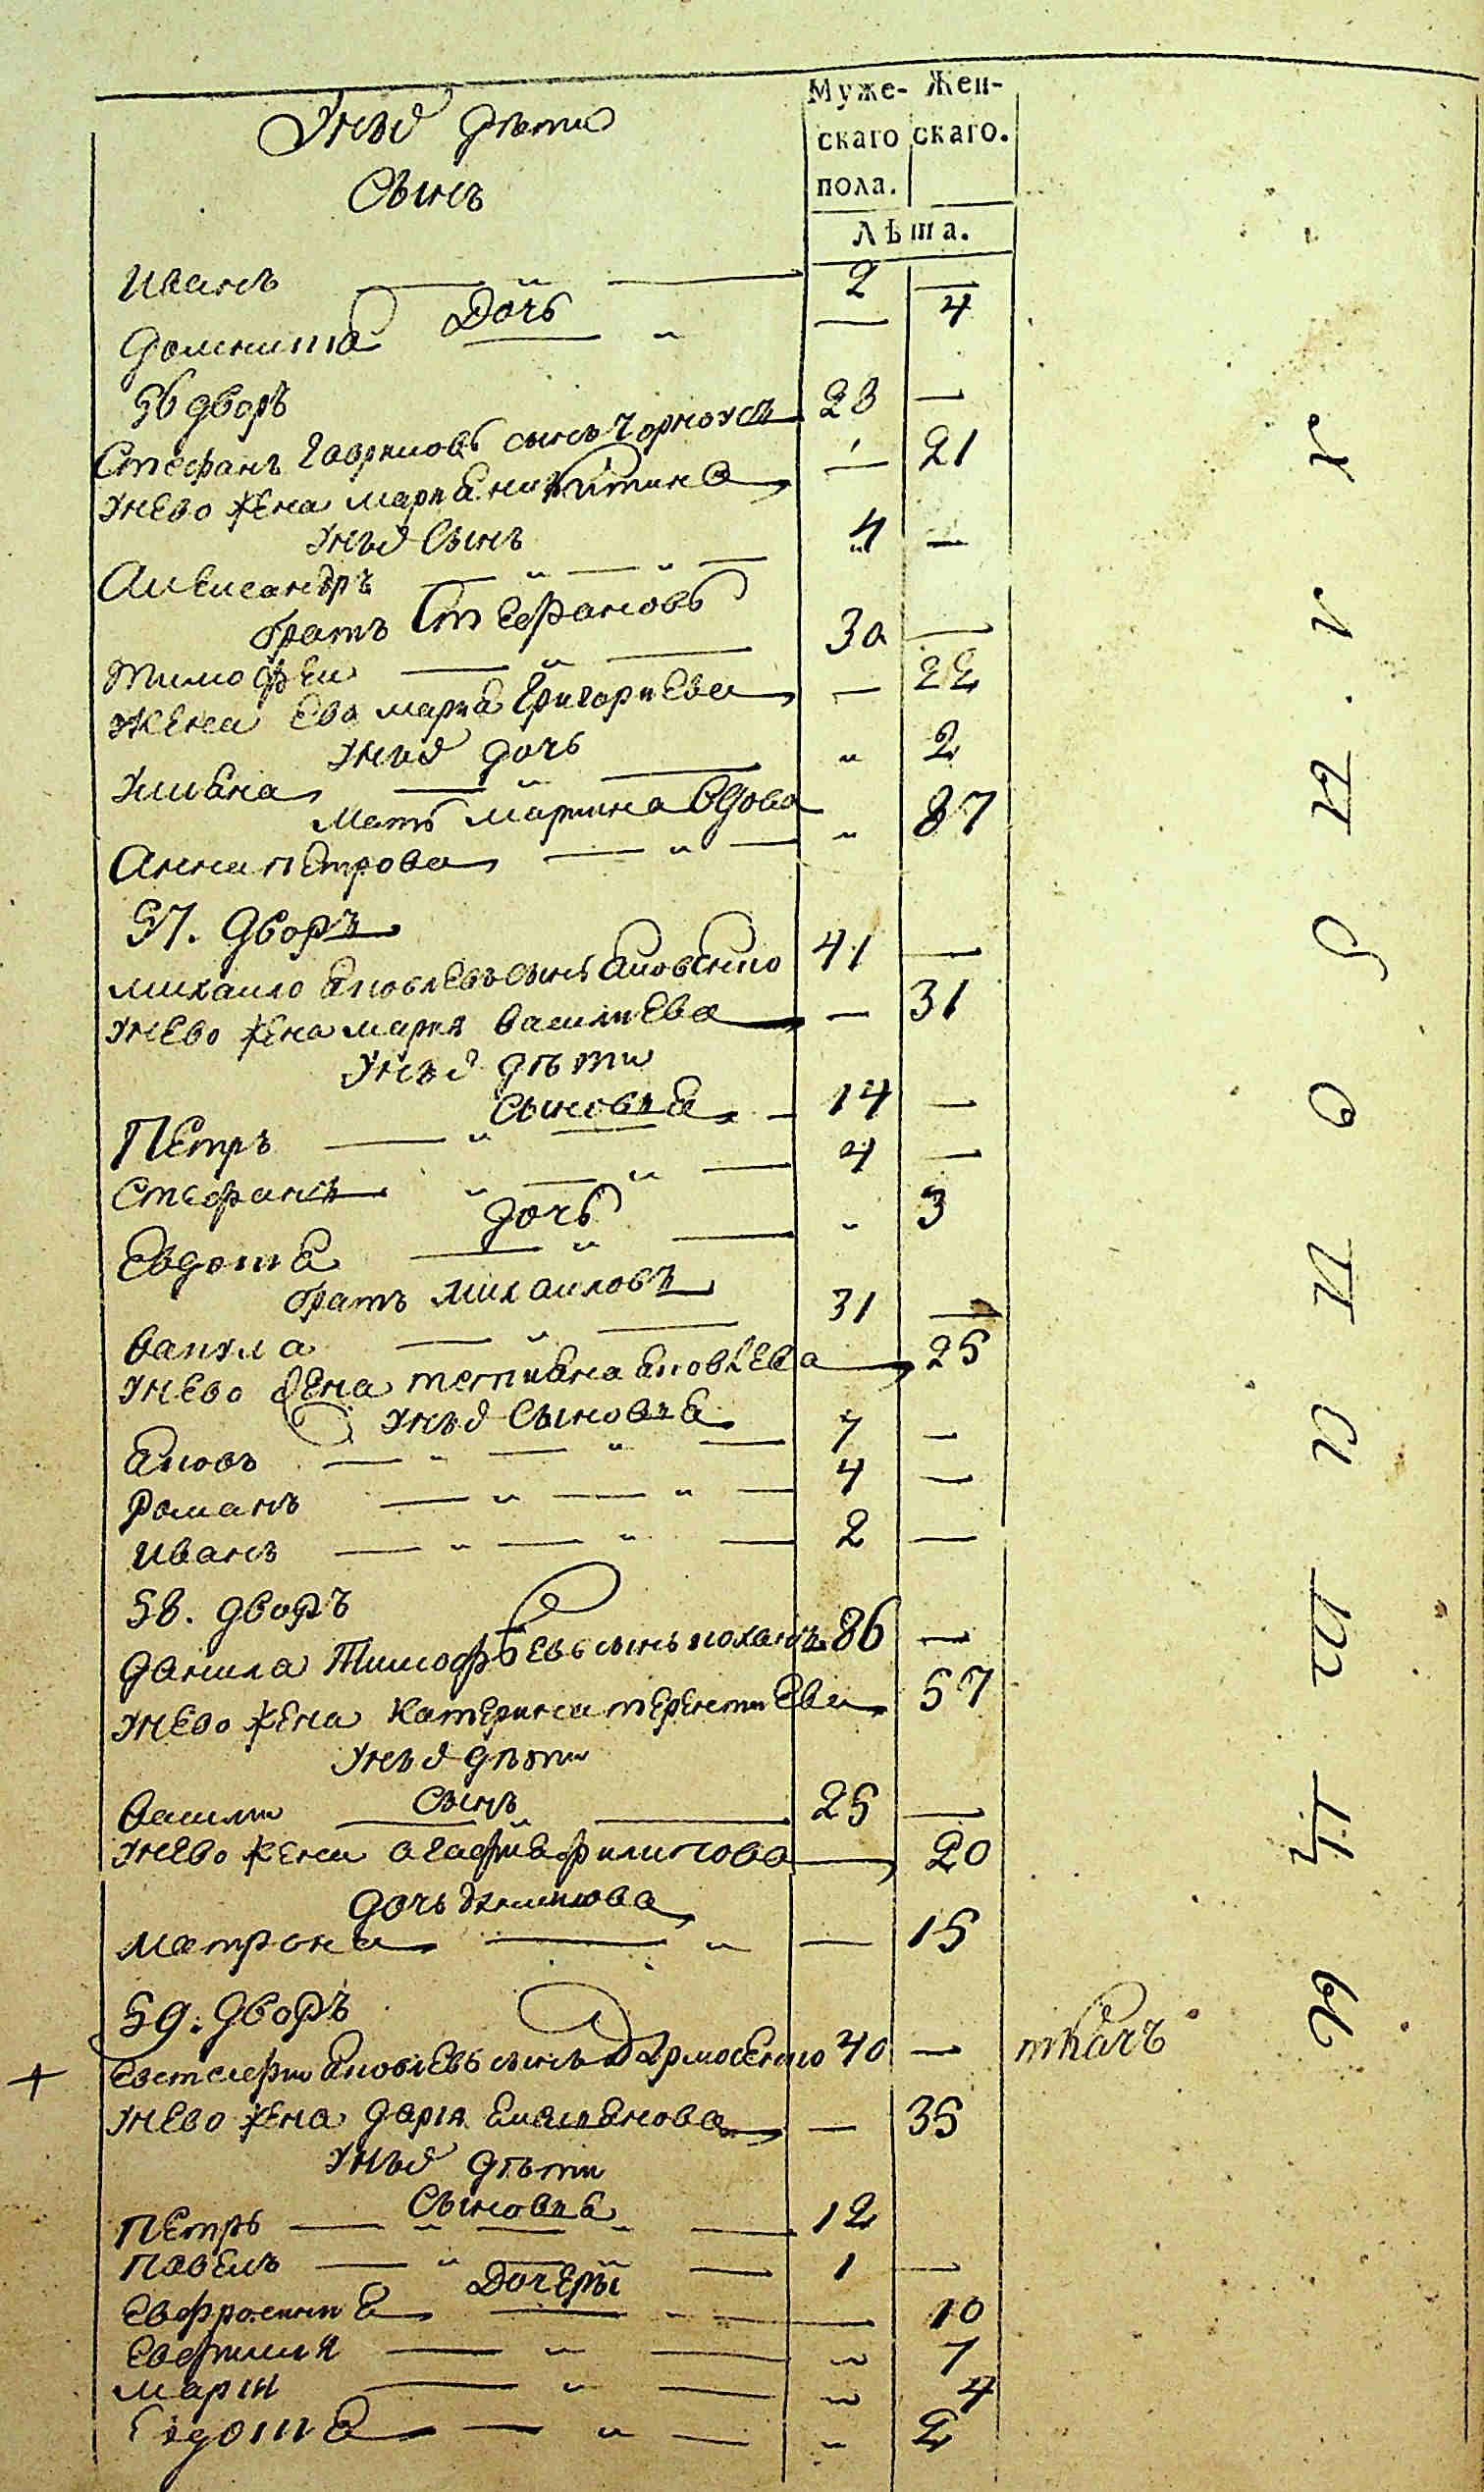 Муже- Жен-
скаго скаго.
пола.
Лѣта.
У нихъ дѣти
Сынъ
Иванъ 2 —
Дочь
Домникія — 4
56 дворъ
Стефанъ Гавриловъ сынъ Чорноусъ 23 —
У нево жена Марія Никитина — 21
У нихъ Сынъ
Александръ 4 —
братъ Стефановъ
Тимофеи 30 —
Жена Ево Марія Григориева — 22
У нихъ дочь
Улияна " 2
Мать Вдова
Анна Петрова " 87
57. дворъ
Михаило Яковлевъ сынъ Яновскио 41 —
У нево жена Мария Василиева — 31
У нихъ дѣти
Сыновия
Петръ 14 —
Стефанъ 4 —
Дочь
Евдокия " 3
братъ Михаиловъ
Вакула 31 —
У нево жена Татияна Яковлева 25
У нихъ Сыновия
Яковъ 7 —
Романъ 4 —
Иванъ 2 —
58. дворъ
Данила Тимофѣевъ сынъ 86 —
У нево жена Катерина Терентиева 57
У нихъ дѣти
Сынъ
Васили 25 —
У нево жена Агафия Филипова 20
дочь Данилова
Матрона — 15
59. дворъ
+ Евстафи Яковлевъ сынъ 40 — ткачъ
У нево жена Дария Емелянова — 35
У нихъ дѣти
Сыновия
Петръ 12
Павелъ 1 —
Дочеры
Евфросиния — 10
Евфимия " 7
Мария " 4
Евдокия " 2